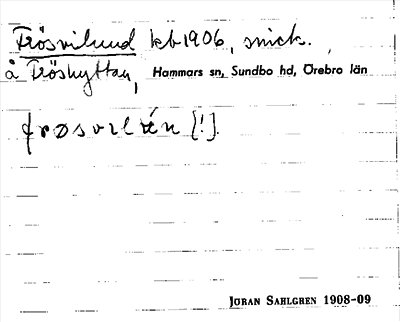 Frösvilund kb 1906, snick.
å Fröshyttan, Hammars sn, Sundbo hd, Örebro län
frøsvilén [!].
JÖRAN SAHLGREN 1908-09